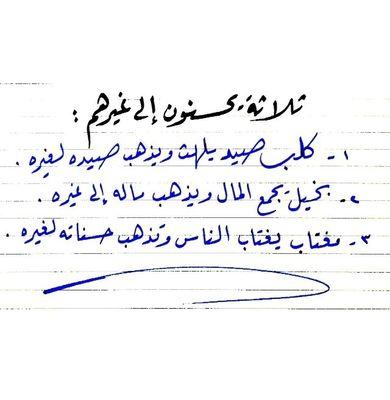 ثلاثة يحسنون إلى غيرهم :
١- كلب صيد يلهث ويذهب صيده لغيره .
٢- بخيل يجمع المال ويذهب ماله إلى غيره .
٣- مغتاب يغتاب الناس وتذهب حسناته لغيره .